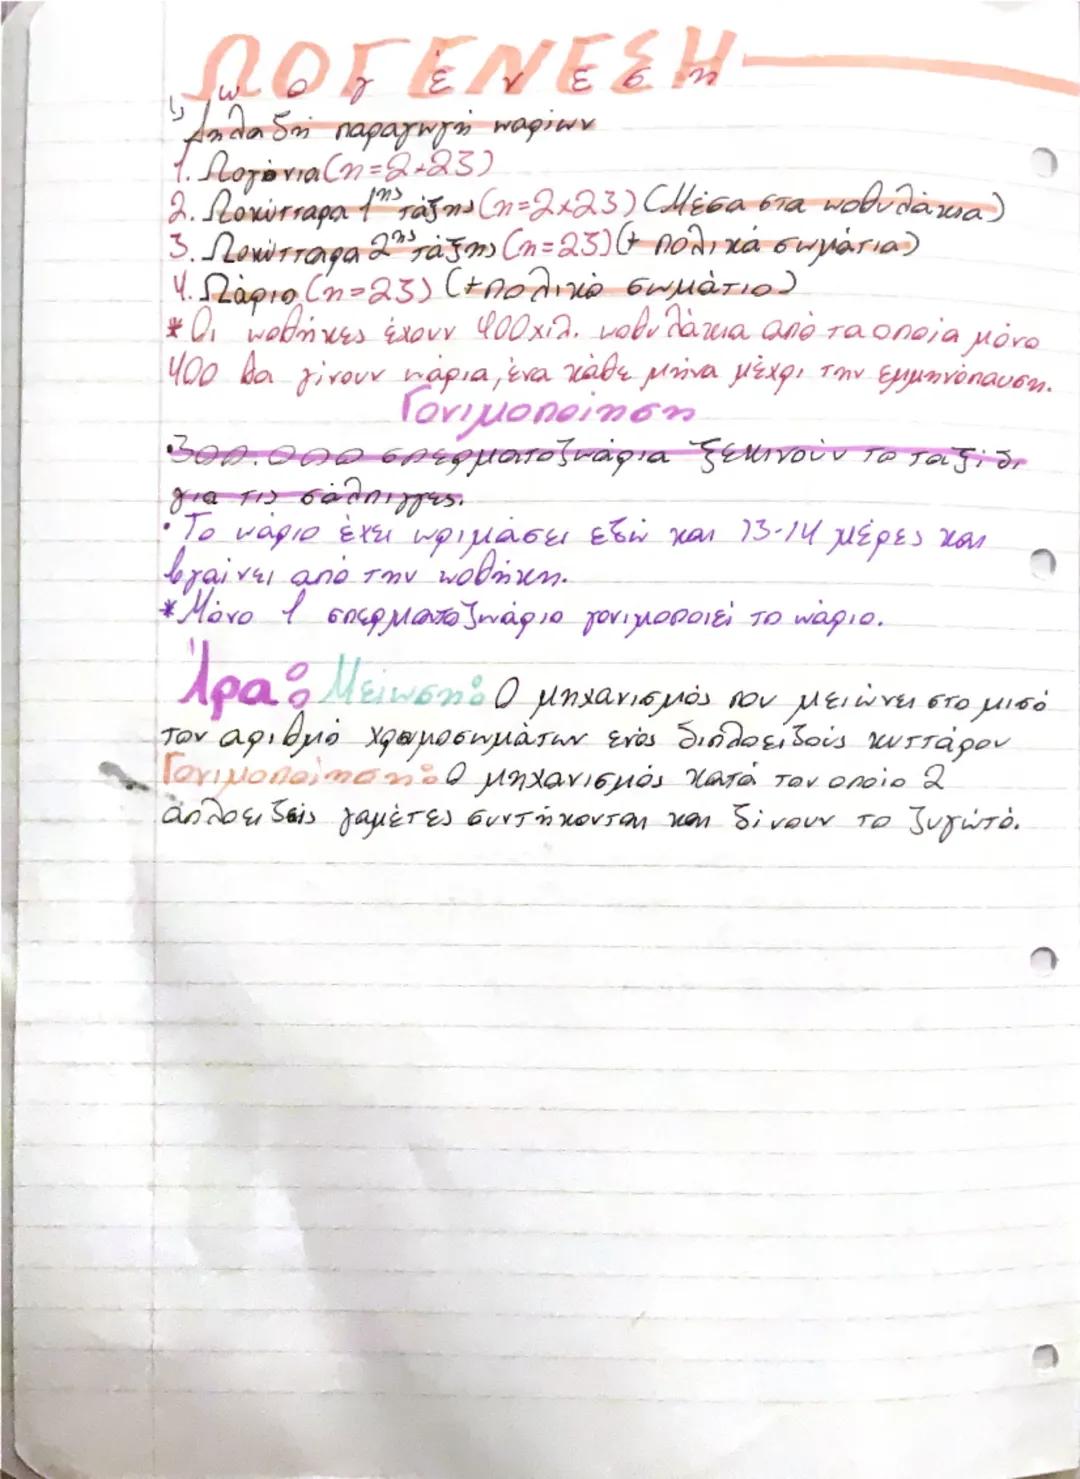 ΩΟΓΕΝΕΣΗ
ωογένεση
↳ Δηλαδή παραγωγή ωαρίων
1. Ωογόνια (n=2×23)
2. Ωοκύτταρα 1ης τάξης (n=2×23) (Μέσα στα ωοθυλάκια)
3. Ωοκύτταρα 2ης τάξης (n=23) (+ πολικά σωμάτια)
4. Ωάριο (n=23) (+πολικό σωμάτιο)
* Οι ωοθήκες έχουν 400χιλ. ωοθυλάκια από τα οποία μόνο
400 θα γίνουν ωάρια, ένα κάθε μήνα μέχρι την εμμηνόπαυση.
Γονιμοποίηση
•300.000 σπερματοζωάρια ξεκινούν το ταξίδι
για τις σάλπιγγες.
• Το ωάριο έχει ωριμάσει εδώ και 13-14 μέρες και
βγαίνει από την ωοθήκη.
* Μόνο 1 σπερματοζωάριο γονιμοποιεί το ωάριο.
Άρα: Μείωση: Ο μηχανισμός που μειώνει στο μισό
τον αριθμό χρωμοσωμάτων ενός διπλοειδούς κυττάρου
Γονιμοποίηση: Ο μηχανισμός κατά τον οποίο 2
απλοειδείς γαμέτες συντήκονται και δίνουν το ζυγωτό.